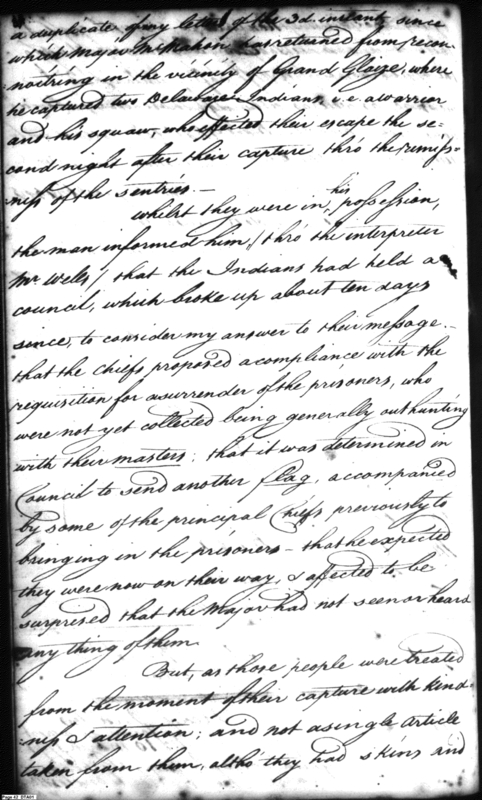 a duplicate of my letter of the 3d. instant, since
which Major McMahon has returned from recon-
noitring in the vicinity of Grand Glaize, where
he captured two Delaware Indians, i.e. a warrior
and his squaw, who effected their escape the se-
cond night after their capture thro the remiss-
ness of the sentries. —
whilst they were in his possession,
the man informed him, / thro' the interpreter
Mr. Wells, / that the Indians had held a
council, which broke up about ten days
since, to consider my answer to their message. —
that the Chiefs proposed a compliance with the
requisition for a surrender of the prisoners, who
were not yet collected being generally out hunting
with their masters; that it was determined in
Council to send another flag, accompanied
by some of the principal Chiefs previously to
bringing in the prisoners — that he expected
they were now on their way, & affected to be
surprised that the Major had not seen or heard
any thing of them.
But, as those people were treated
from the moment of their capture with kind-
ness & attention; and not a single article
taken from them, altho they had skins and